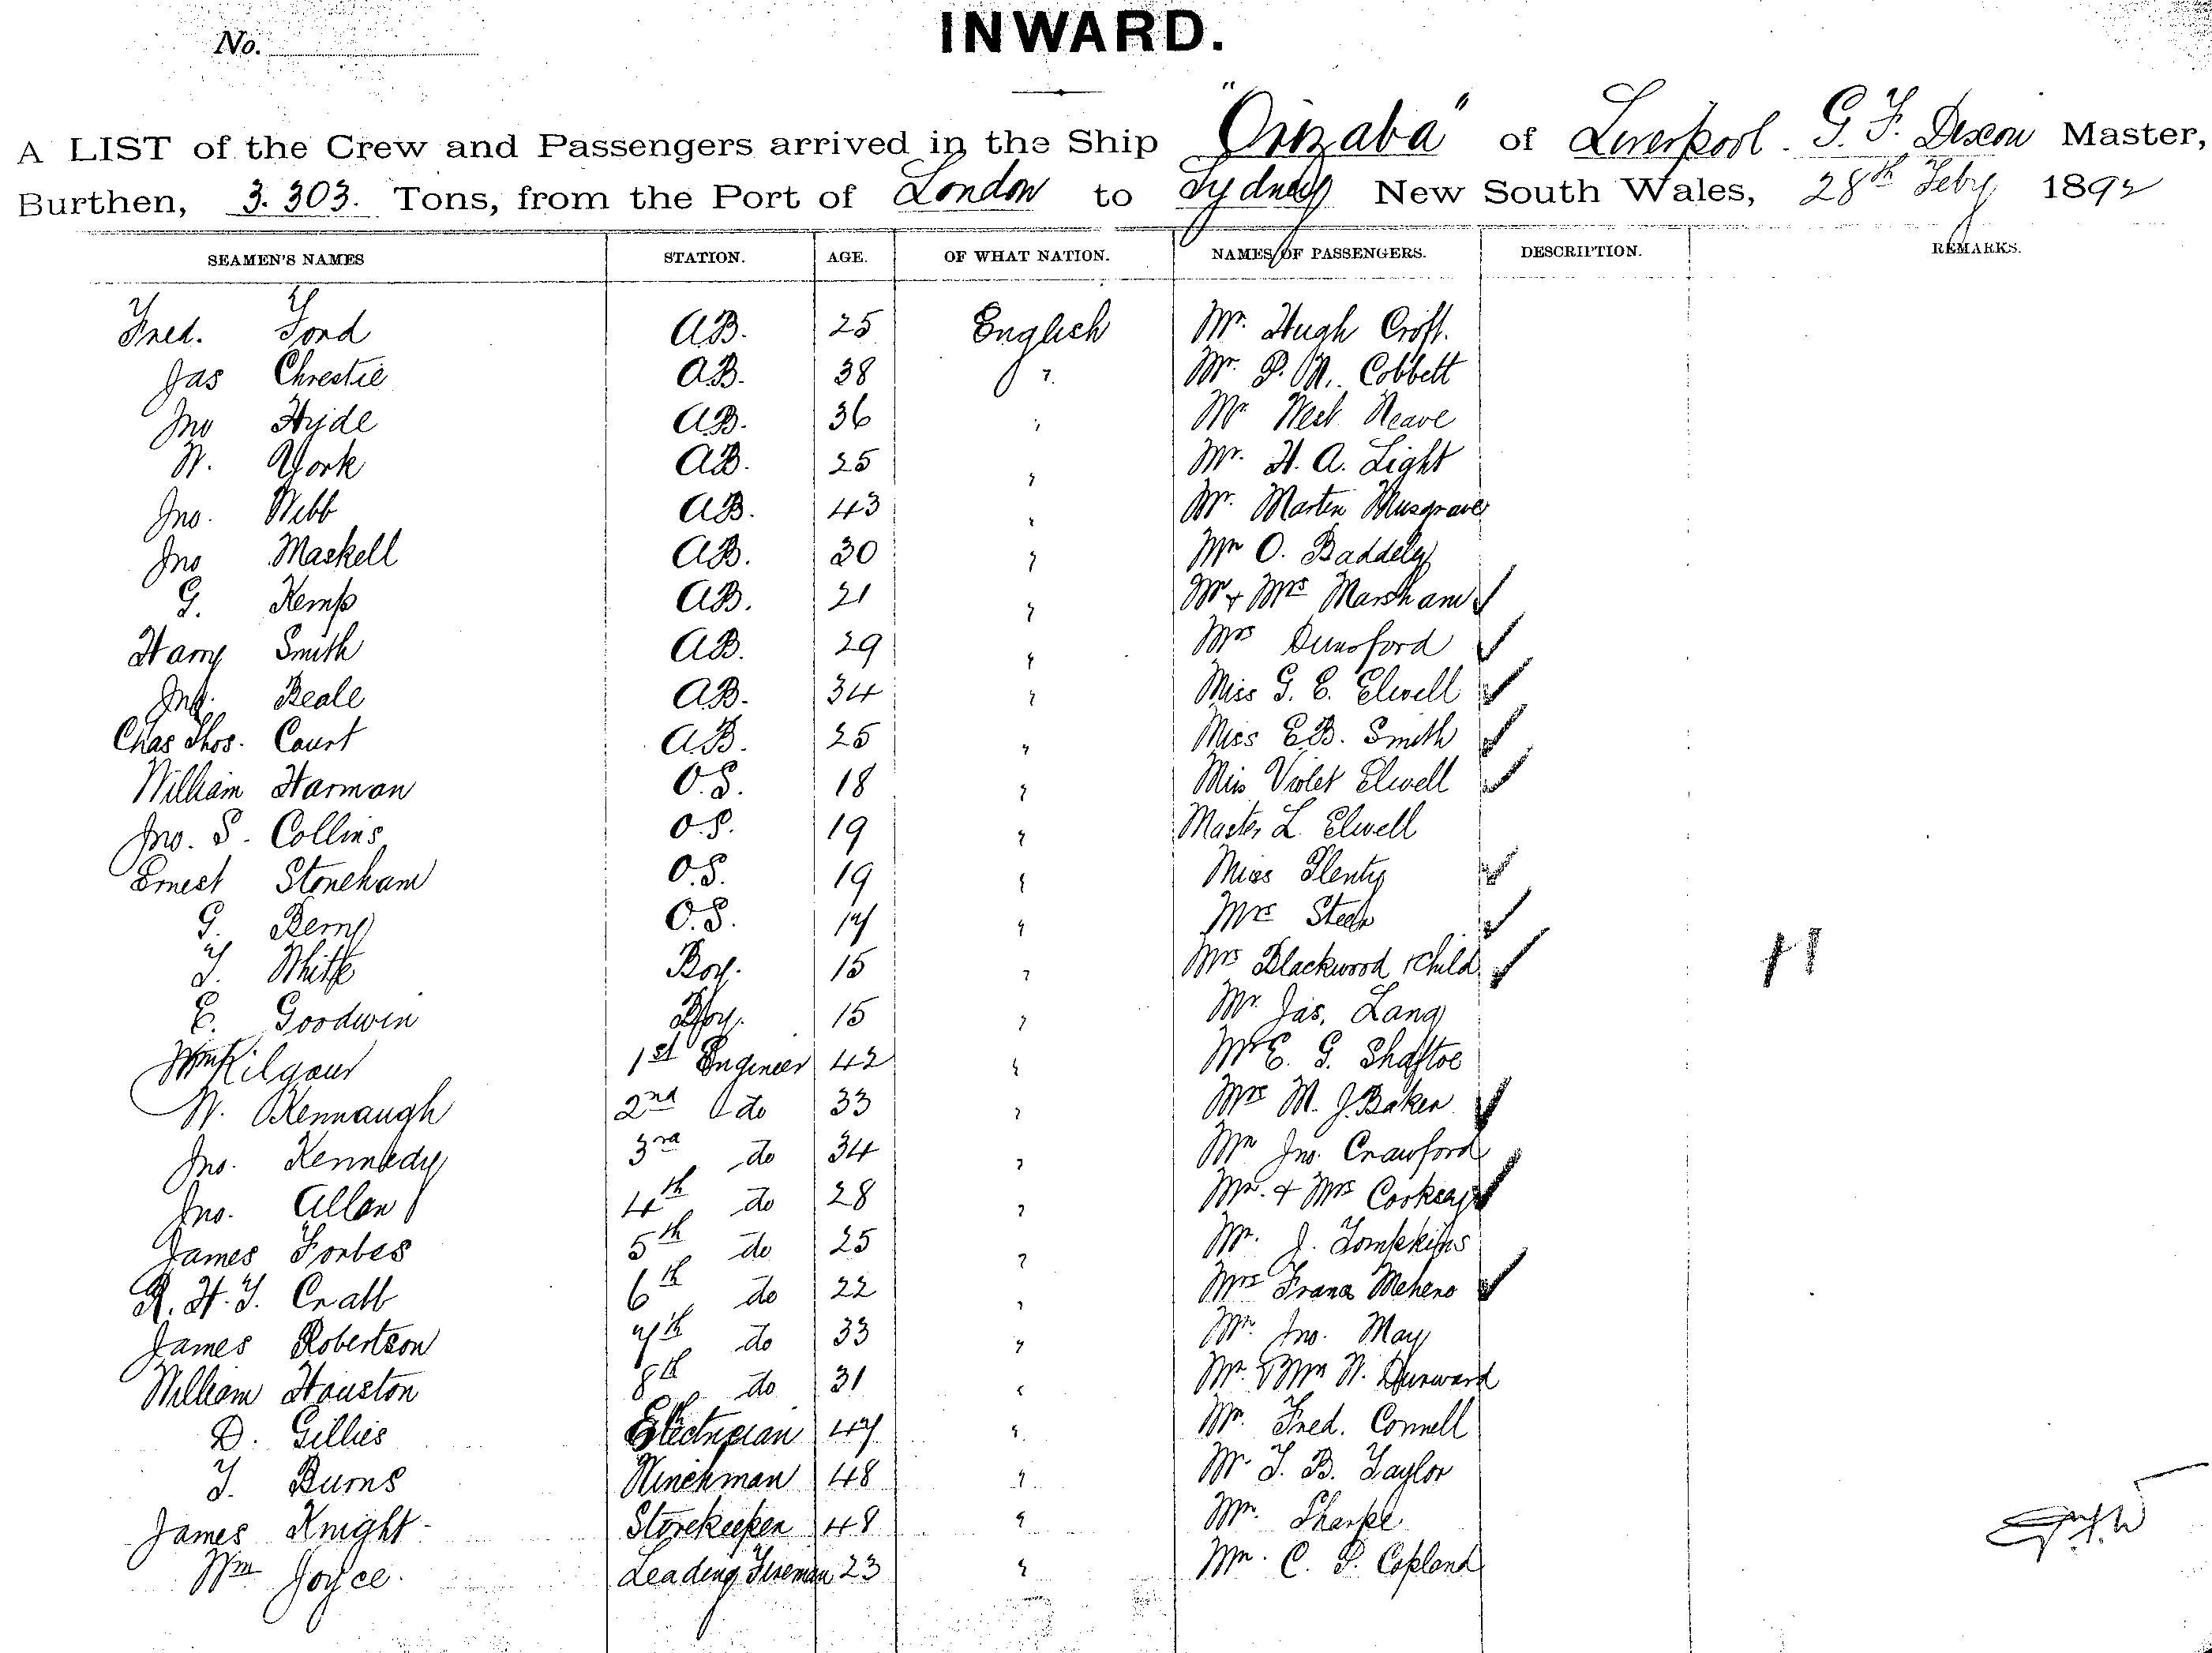 No.
INWARD.
A LIST of the Crew and Passengers arrived in the Ship "Orizaba" of Liverpool. G. F. Dixon Master,
Burthen, 3.303. Tons, from the Port of London to Sydney New South Wales, 28th Feby 1892
SEAMEN'S NAMES STATION. AGE. OF WHAT NATION. NAMES OF PASSENGERS. DESCRIPTION. REMARKS.
Fred. Ford A.B. 25 English Mr. Hugh Croft.
Jas Chrestie A.B. 38 " Mr. P. N. Cobbett
Jno Hyde A.B. 36 " Mr West Neave
W. York A.B. 25 " Mr. H. A. Light
Jno. Webb A.B. 43 " Mr. Martin Musgrave
Jno Maskell A.B. 30 " Mr O. Baddeley
G. Kemp A.B. 21 " Mr & Mrs Marsham
Harry Smith A.B. 29 " Mrs Dunsford
Jno. Beale A.B. 34 " Miss G. E. Elwell
Chas Thos. Court A.B. 25 " Miss E.B. Smith
William Harman O.S. 18 " Miss Violet Elwell
Jno. S. Collins O.S. 19 " Master L. Elwell
Ernest Stoneham O.S. 19 " Miss Plenty
G. Berry O.S. 17 " Mrs
T. White Boy. 15 " Mrs Blackwood & Child
E. Goodwin Boy. 15 " Mr. Jas. Lang
Wm Kilgour 1st Engineer 42 " Mr E. G. Shaftoe
W. Kennaugh 2nd do 33 " Mrs M. J. Baker
Jno. Kennedy 3rd do 34 " Mr Jno. Crawford
Jno. Allan 4th do 28 " Mr. & Mrs
James Forbes 5th do 25 " Mr. J. Tompkins
R. H. T. Crabb 6th do 22 " Mrs
James Robertson 7th do 33 " Mr. Jno. May
William Houston 8th do 31 " Mr. & Mrs W. Durward
D. Gillies Electrician 47 " Mr. Fred. Connell
T. Burns Winchman 48 " Mr T. B. Taylor
James Knight Storekeeper 48 " Mr. Sharpe
Wm Joyce. Leading Fireman 23 " Mr. C. P. Copland